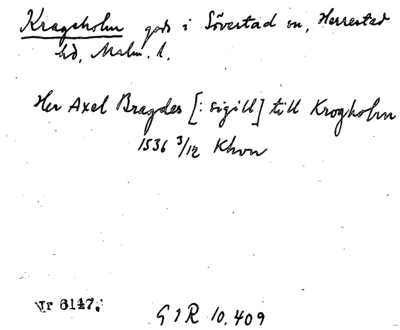 Kragsholm gods i Sövestad sn, Herrestad
hd, Malm. l.
Her Axel Bragdes [: sigill] till Krogholm
1536 3/12 Khvn
Nr 6147.
G I R 10.409